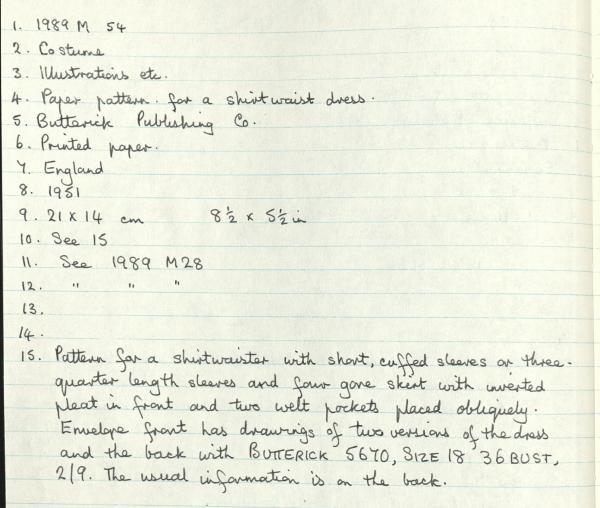 1. 1989 M 54
2. Costume
3. Illustrations etc.
4. Paper pattern. for a shirtwaist dress.
5. Butterick Publishing Co.
6. Printed paper.
7. England
8. 1951
9. 21 x 14 cm 8½ x 5½ in
10. See 15
11. See 1989 M28
12. " " "
13.
14.
15. Pattern for a shirtwaister with short, cuffed sleeves or three-
quarter length sleeves and four gore skirt with inverted
pleat in front and two welt pockets placed obliquely.
Envelope front has drawings of two versions of the dress
and the back with BUTTERICK 5670, SIZE 18 36 BUST,
2/9. The usual information is on the back.